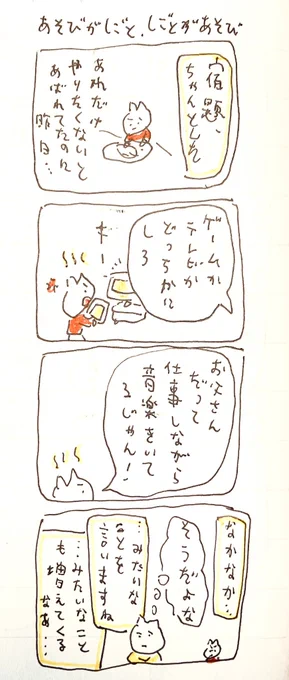 あそびがしごと、しごとがあそび
宿題、
ちゃんとしな
あれだけ
やりたくないと
あばれてたのに
昨日…
ゲームか
テレビか
どっちかに
しろ
お父さん
だって
仕事しながら
音楽をきいて
るじゃん!
なかなか…
そうだよな
…みたいな
ことを
言いますね
…みたいなこと
も増えてくる
なぁ…